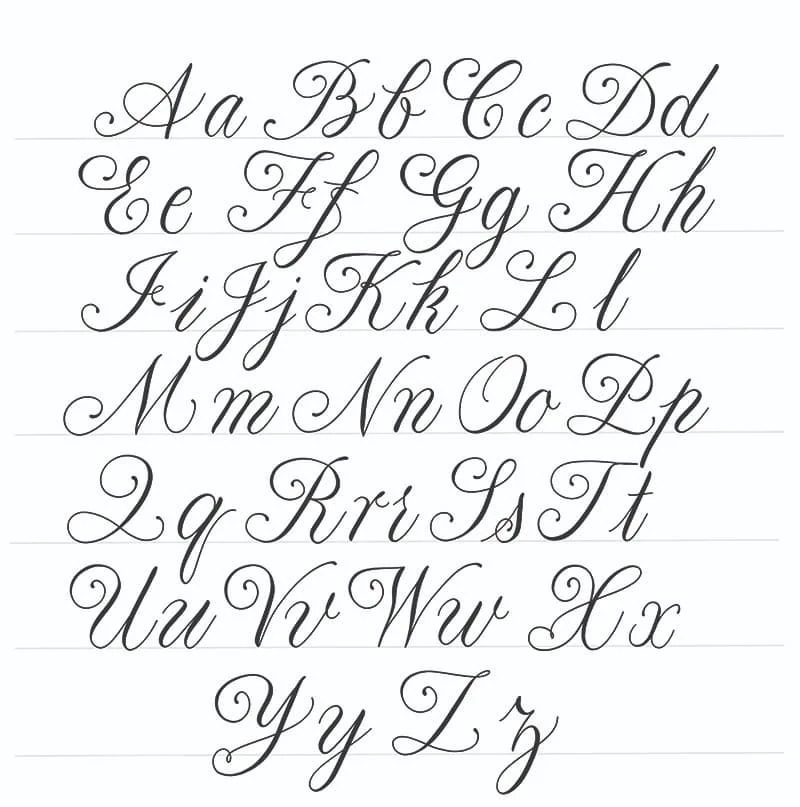 Aa Bb Cc Dd
Ee Ff Gg Hh
Ii Jj Kk Ll
Mm Nn Oo Pp
Qq Rrr Ss Tt
Uu Vv Ww Xx
Yy Zz